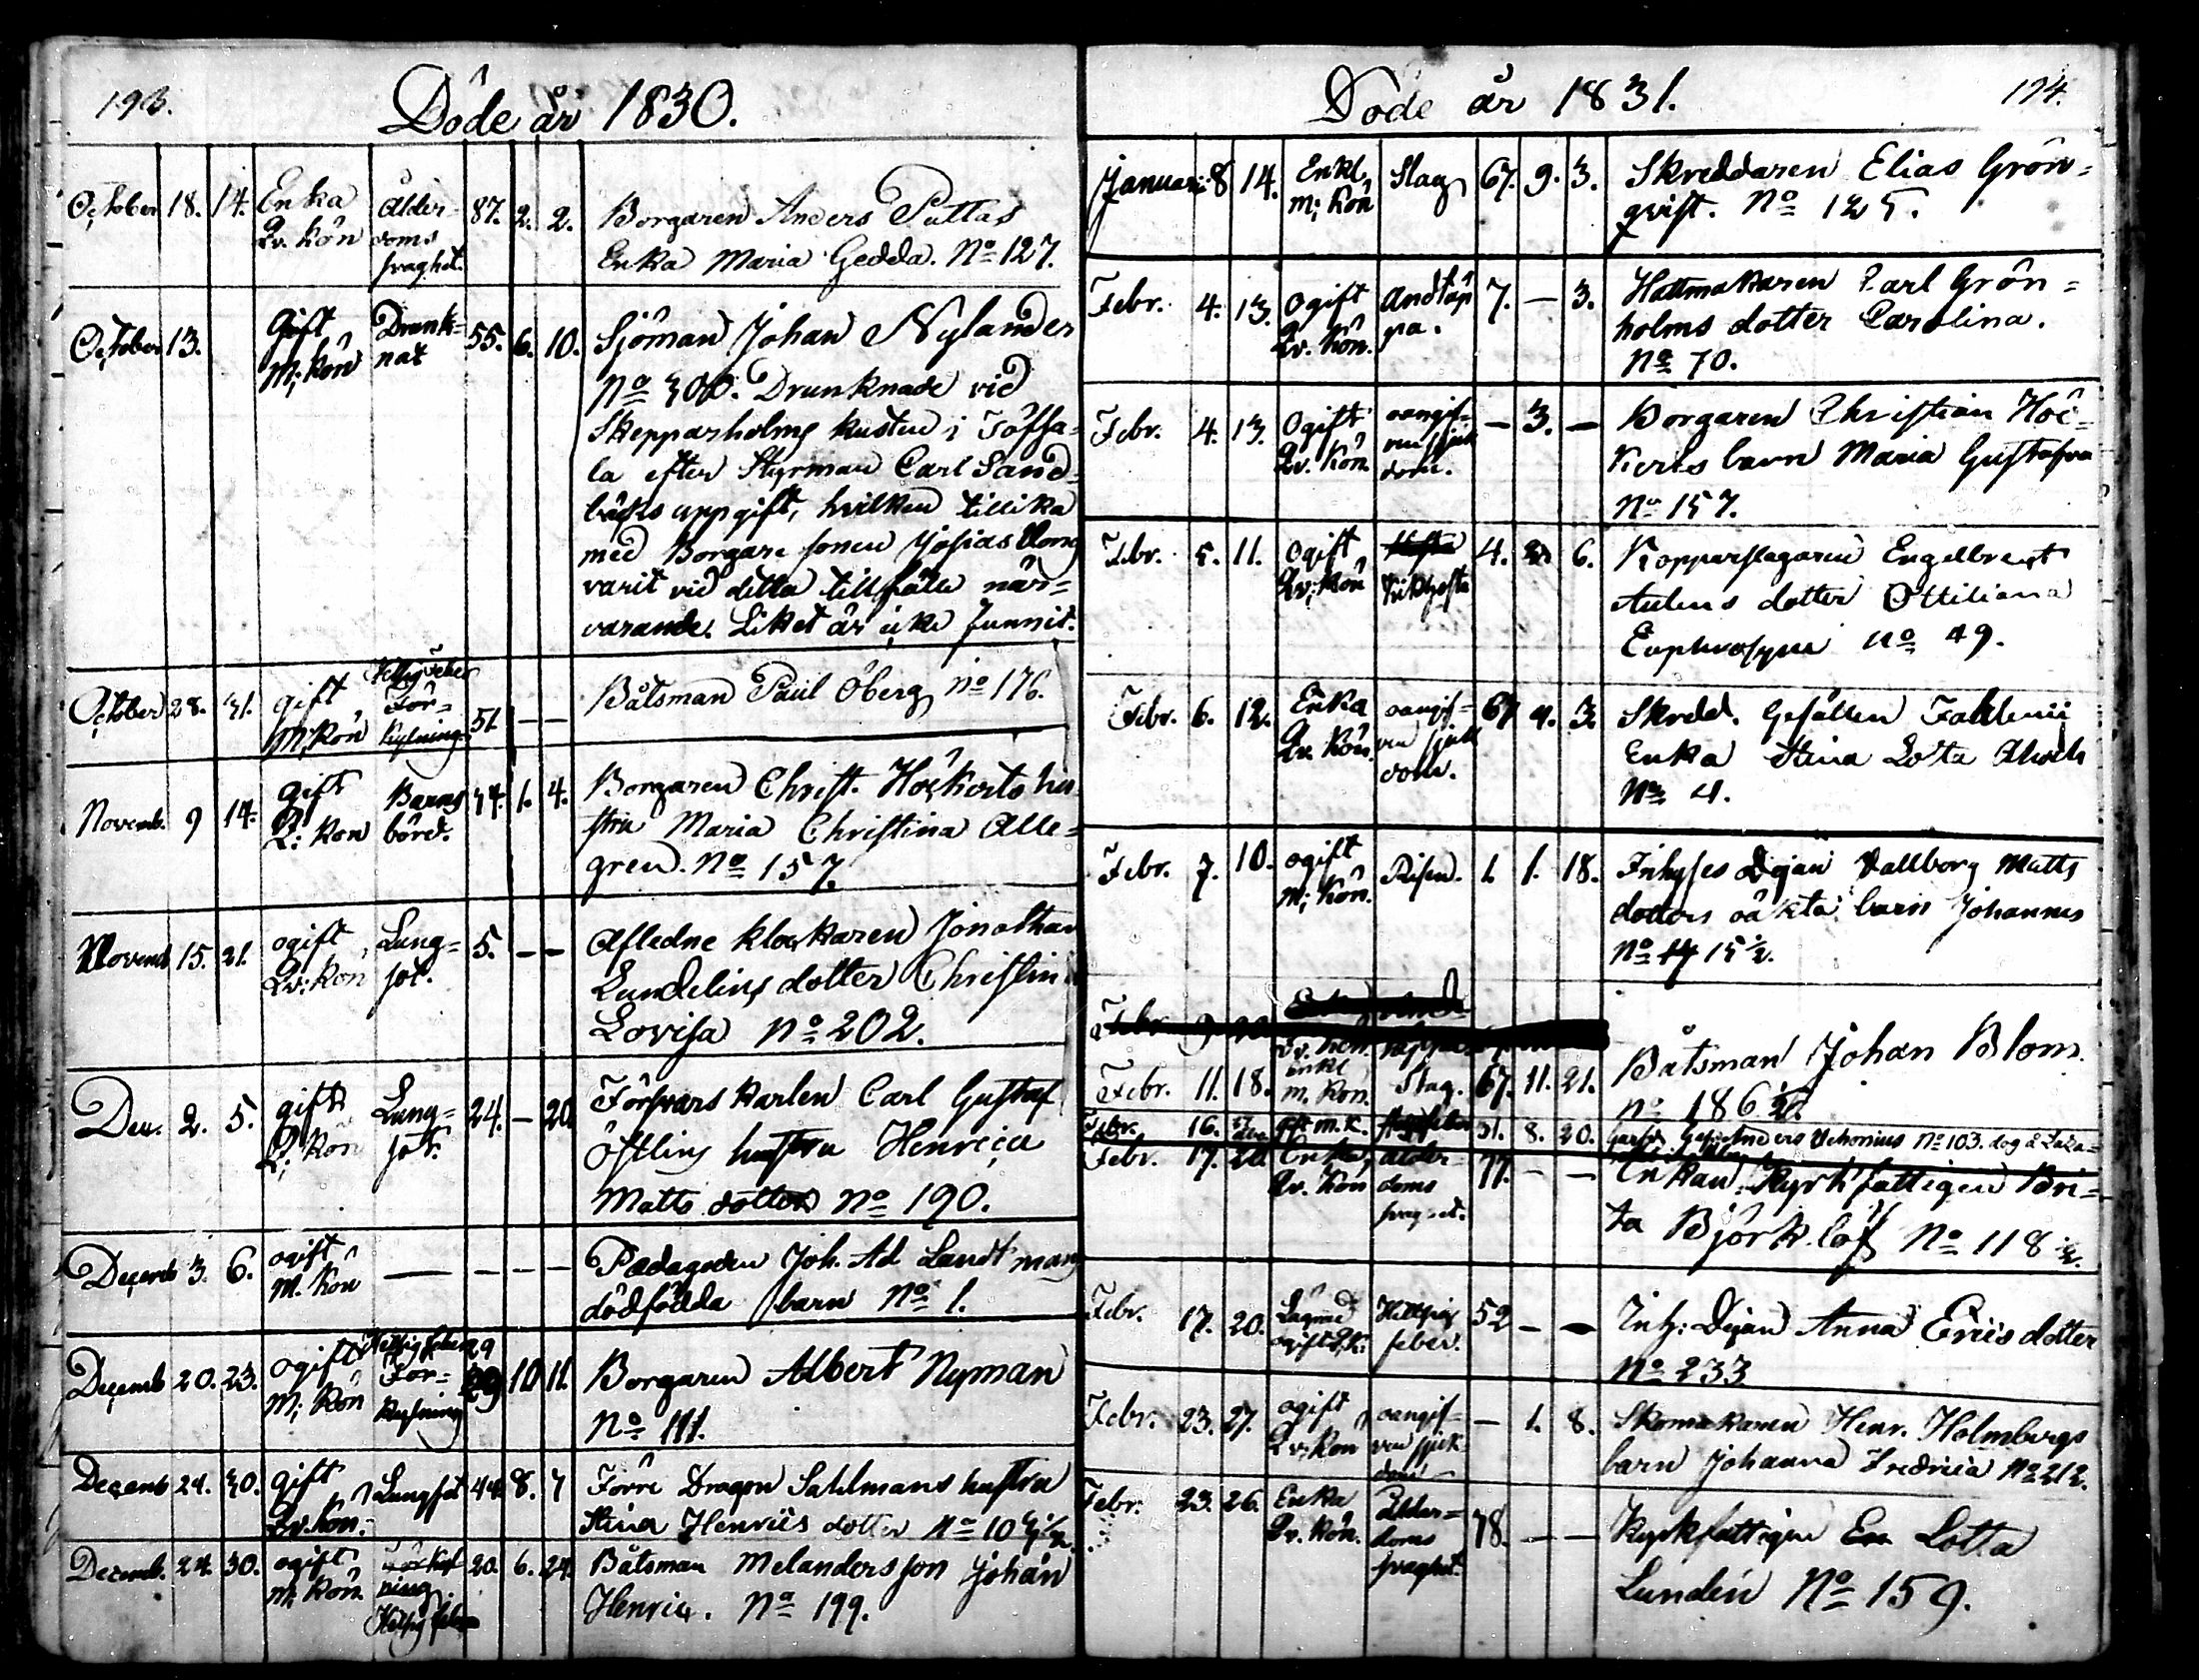 193.
Döde år 1830.
October 18. 14. Enka Ålder- 87. 2. 2. Borgaren Anders Puttas
Qv. Kön doms Enka Maria Gedda. No 127.
svaghet.
October 13. Gift Drunk- 55. 6. 10. Sjöman Johan Nylander
M; Kön nat No 300. Drunknade vid
Skepparholms kusten i Töfsa-
la efter Styrman Carl Sand-
bäcks uppgift, hvilken tillika
med Borgare sonen Josias
varit vid detta tillfälle när-
varande. Liket är icke funnit.
October 28. 31. gift För- 51 — — Båtsman Paul Öberg no 176.
M; Kön kylning
Novemb. 9 14. gift Barns 1. 4. Borgaren Christ. Höckerts hu-
Q: Kön börd. stru Maria Christina Alle-
gren. No 157.
Novemb 15. 21. ogift Lung- 5. — — Afledne klockaren Jonathan
Qv: Kön sot. Lundelins dotter Christina
Lovisa No 202.
Dec. 2. 5. gift Lung- 24. — 20 Försvars karlen Carl Gustaf
Q; Kön sot. Östlins hustru Henrica
Matts dotter No 190.
Decemb 3. 6. ogift — — — — Pædagogen Joh. Ad Landtmans
M. Kön dödfödda barn No 1.
Decemb 20. 23. ogift För- 29 10 11. Borgaren Albert Nyman
M; Kön kylning No 111.
Decemb 24. 30. gift Lungsot 44 8. 7 Förre Dragon Sahlmans hustru
Qv. Kön. Stina Henrics dotter No
Decemb. 24. 30. ogift Förkyl 20. 6. 24. Båtsman Melanders son Johan
M; Kön. ning. Henric. No 199.
Hetsig feber
194.
Döde år 1831.
Januari 8 14. Enkl. Slag 67. 9. 3. Skreddaren Elias Grön-
m; Kön qvist. No 125.
Febr. 4. 13. Ogift Andtäp 7. — 3. Hattmakaren Carl Grön-
Qv. Kön. pa. holms dotter Carolina.
No 70.
Febr. 4. 13. Ogift oangif- — 3. — Borgaren Christian Höc-
Qv. Kön. ven sjuk kerts barn Maria Gustafva
dom. No 157.
Febr. 5. 11. Ogift 4. 6. Kopparslagaren Engelbrect
Qv; Kön Kikhosta Aulens dotter Ottiliana
Euphrosyne No 49.
Febr. 6. 12. Enka oangif- 67 4. 3. Skredd. Gesällen
Qv. Kön. ven sjuk Enka Stina Lota
dom. No 4.
Febr. 7. 10. ogift Risen. 1. 1. 18. Inhyses Dejan Vallborg Matts
m; Kön. dotters oäkta barn Johannes
No 15 ½.
Febr. 11. 18. Enkl Slag. 67. 11. 21. Båtsman Johan Blom.
m. Kön. no 186 ½
Febr. 16. gft m. k. 51. 8. 20. No 103.
Febr. 17. Enka, Ålder- 77. — — Enkan Kyrkfattigen Bri-
Qv. Kön doms ta Björklöf No 118 ½.
svaghet.
Febr. 17. 20. Lägrad Hetsig 52 — — Inh: Dejan Anna Erics dotter
ogift Q.K. feber. No 233
Febr. 23. 27. ogift oangif- — 1. 8. Skomakaren Henr. Holmbergs
Qv. Kön ven sjuk barn Johanna Fredrica No 212.
dom
Febr. 23. 26. Enka Ålder- 78. — — Kyrkfattigen Lotta
Qv. Kön. doms Lundén No 159.
svaghet.